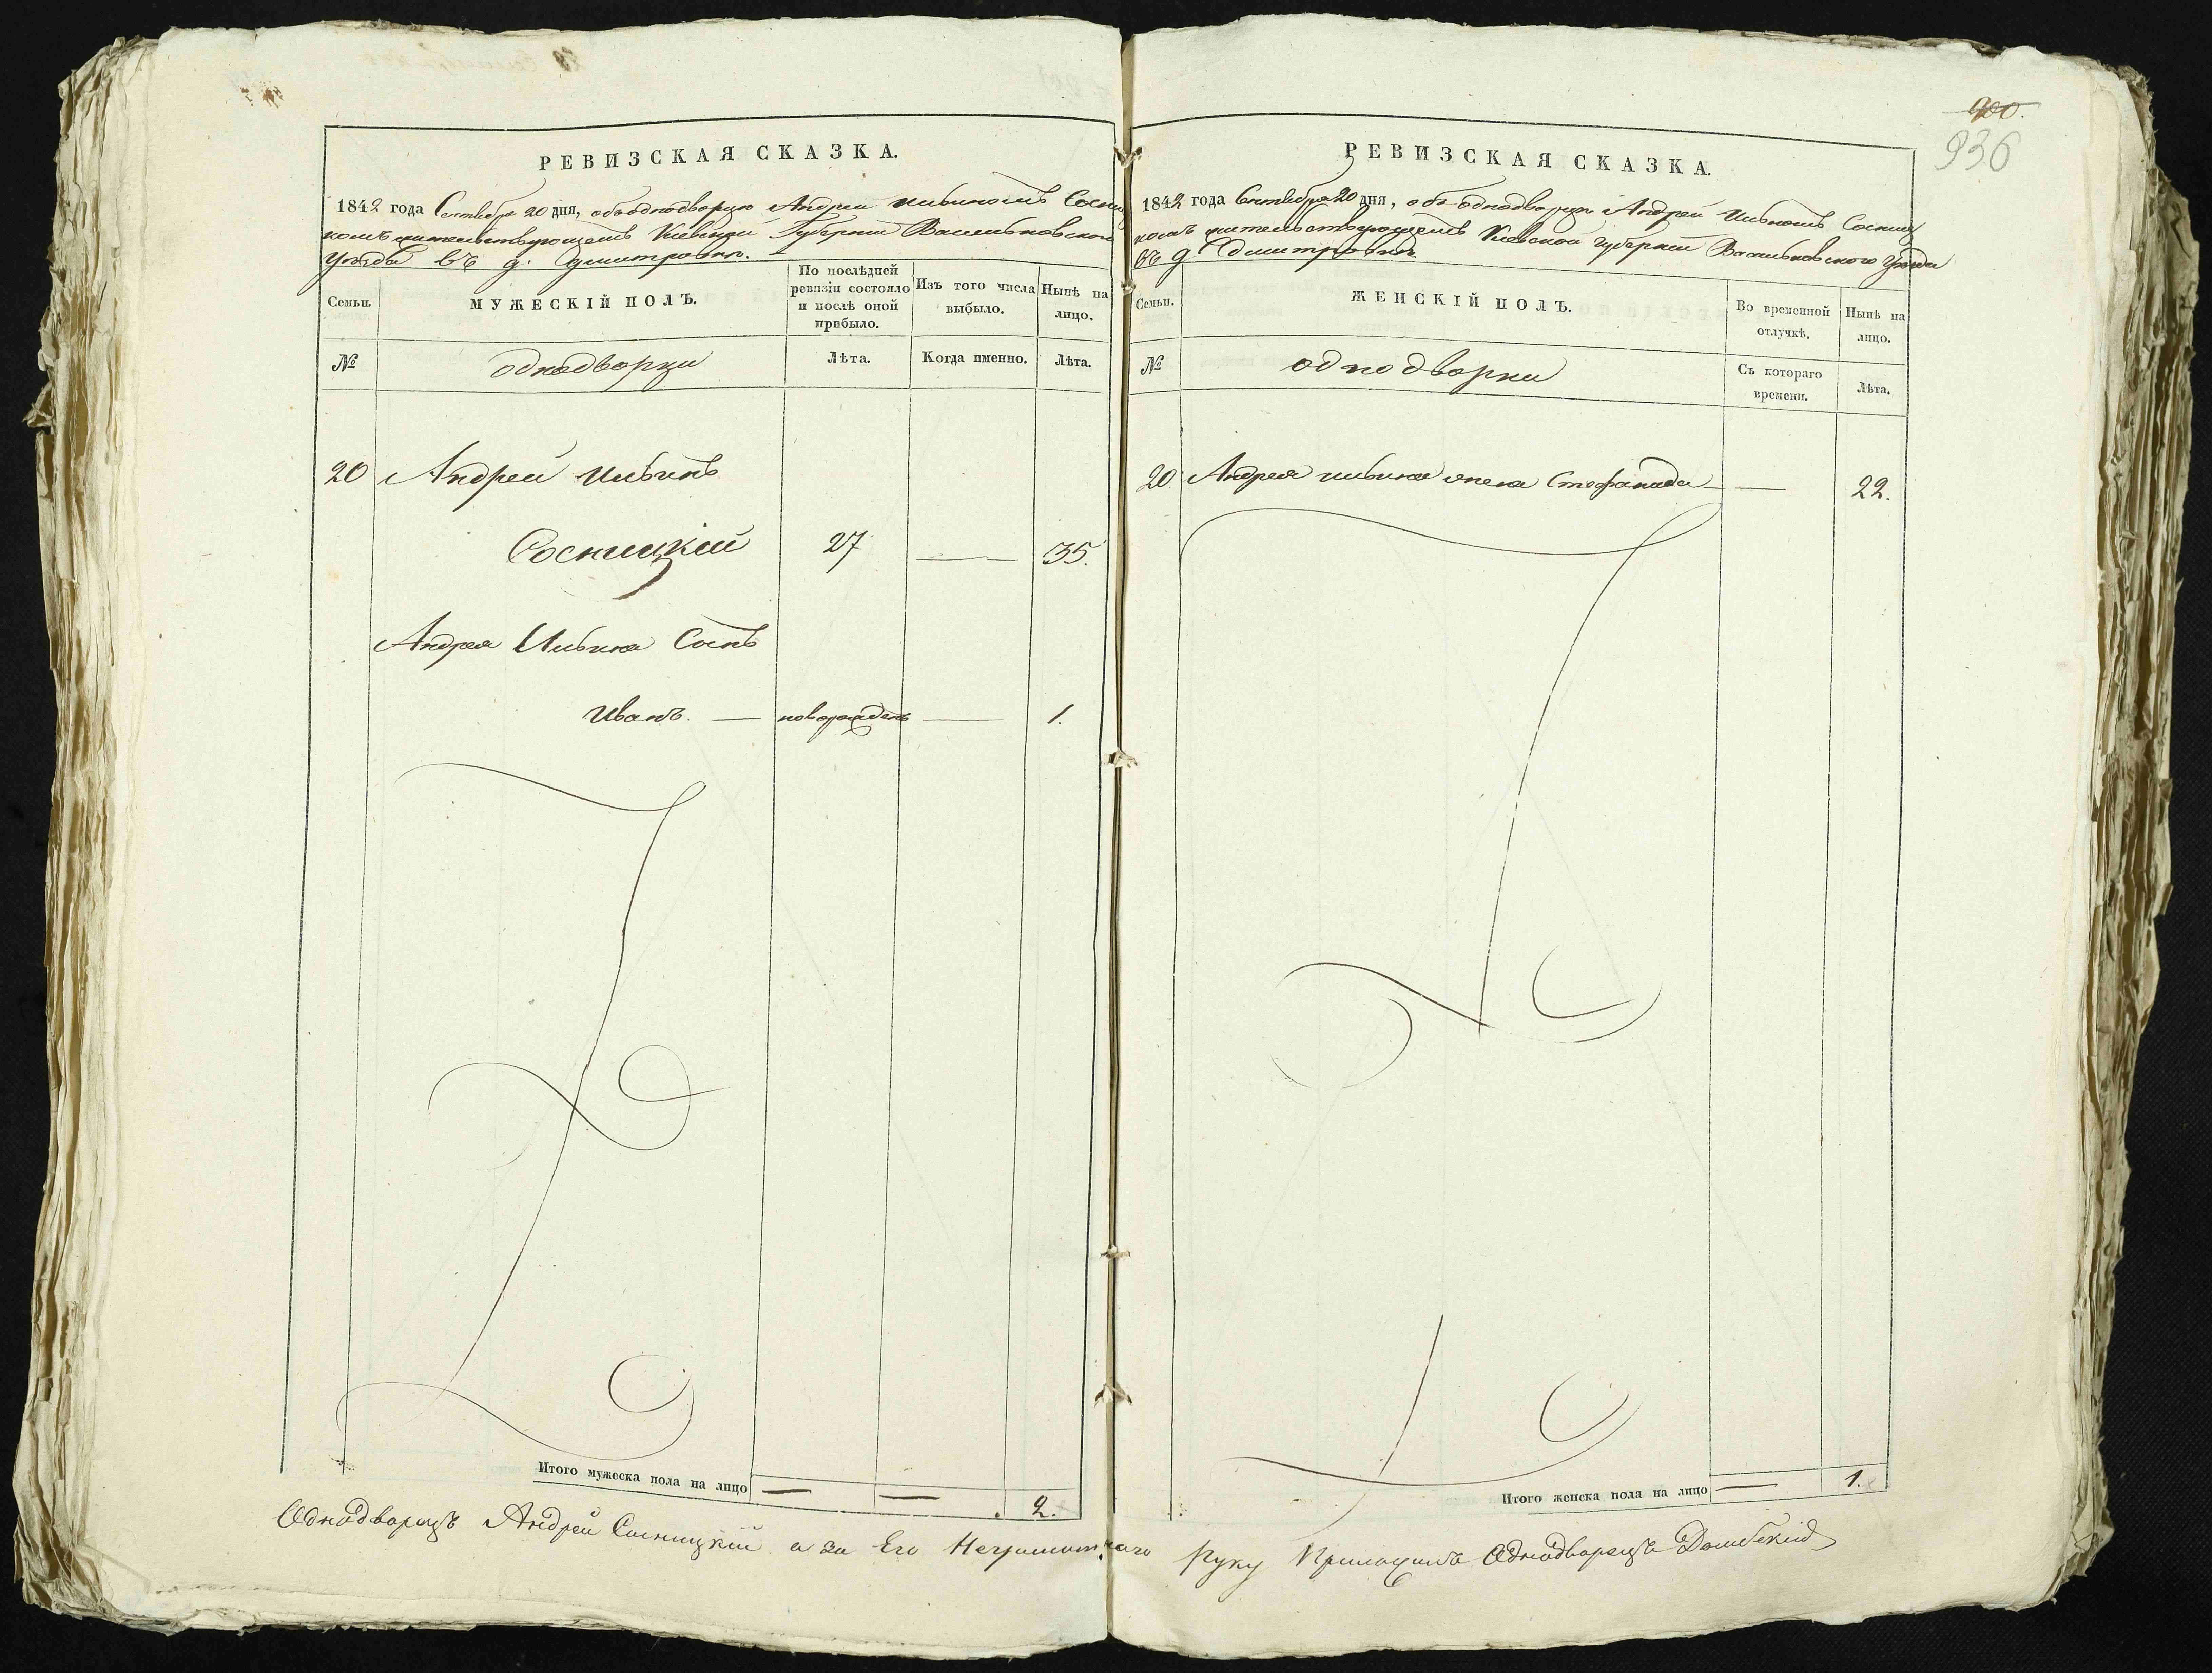 РЕВИЗСКАЯ СКАЗКА.
1842 года Сентября 20 дня, объ однодворцѣ Андреи Ильиномъ Сосниц
комъ жительствующемъ Кіевской Губерніи Васильковскаго
Уѣзда въ д. Дмитровки.
Семьи.
МУЖЕСКІЙ ПОЛЪ.
По послѣдней ревизіи состояло и послѣ оной прибыло.
Изъ того числа выбыло.
Нынѣ на лицо.
№
однодворцы
Лѣта.
Когда именно.
Лѣта.
20 Андрей Ильинъ
Сосницкій 27 — 35.
Андрея Ильина Сынъ
Иванъ. — новорожденъ — 1.
Итого мужеска пола на лицо — — 2.
900.
936
РЕВИЗСКАЯ СКАЗКА.
1842 года Сентября 20 дня, объ однодворцѣ Андреѣ Ильиномъ Сосниц
комъ жительствующемъ Кіевской Губерніи Васильковского Уѣзда
въ д Дмитровкѣ.
Семьи.
ЖЕНСКІЙ ПОЛЪ.
Во временной отлучкѣ.
Нынѣ на лицо.
№
однодворки
Съ котораго времени.
Лѣта.
20 Андрея ильина жена Стефанида — — 22.
Итого женска пола на лицо — 1.
Однодворецъ Андрей Сосницкій а за Его Неграмотнаго Руку Приложилъ Однодворецъ